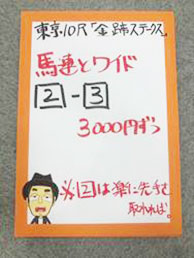 東京10R「金蹄ステークス」
馬連とワイド
2-3
3000円ずつ
2は楽に先手を
取れれば。